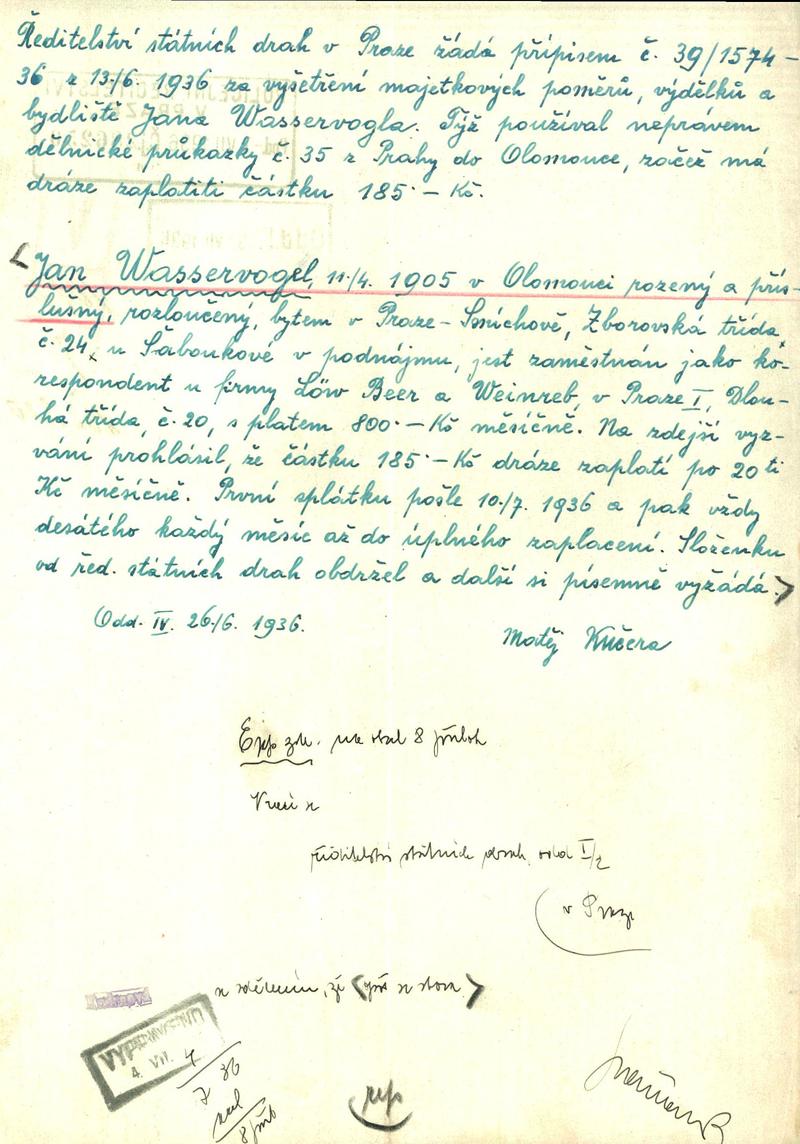 Ředitelství státních drah v Praze žádá přípisem č. 39/1574-
36 z 13./6. 1936 za vyšetření majetkových poměrů, výdělků a
bydliště Jana Wasservogla. Týž používal neprávem
dělnické průkazky č. 35 z Prahy do Olomouce, začež má
dráze zaplatiti částku 185·– Kč.
Jan Wasservogel, 11./4. 1905 v Olomouci rozený a přís-
lušný, rozloučený, bytem v Praze-Smíchově, Zborovská třída
č. 24, u Šaboukové v podnájmu, jest zaměstnán jako ko-
respondent u firmy Löw Beer a Weinreb, v Praze I, Dlou-
há třída, č. 20, s platem 800·– Kč měsíčně. Na zdejší vyz-
vání prohlásil, že částku 185·– Kč dráze zaplatí po 20 ti
Kč měsíčně. První splátku pošle 10./7. 1936 a pak vždy
desátého každý měsíc až do úplného zaplacení. Složenku
od řed. státních drah obdržel a další si písemně vyžádá.
Odd. IV. 26./6. 1936.
Matěj Kučera
8 příloh
Vrací se
ředitelství státních drah, odd I/2
v Praze
se sdělením, že
VYPRAVENO
4. VII.
4
7 36
8 příl